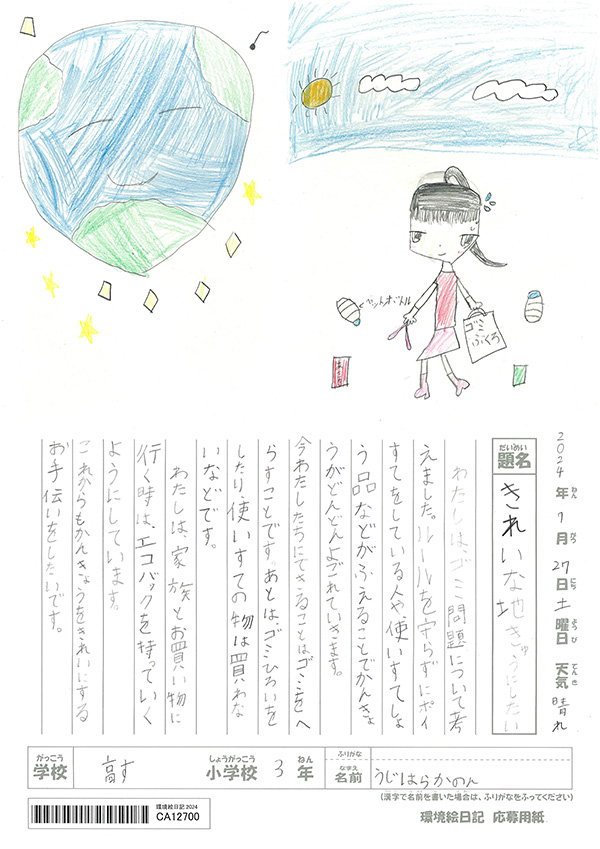 ペットボトル
ゴミ
ぶくろ
2024年7月27日土曜日 天気 晴れ
ねん がつ にち ようび てんき
だいめい
題名
きれいな地きゅうにしたい
わたしは、ゴミ問題について考
えました。ルールを守らずにポイ
すてをしている人や、使いすてしょ
う品などがふえることでかんきょ
うがどんどんよごれていきます。
今わたしたちにできることは、ゴミをへ
らすことです。あとは、ゴミひろいを
したり使いすての物は買わな
いなどです。
わたしは、家族とお買い物に
行く時は、エコバックを持っていく
ようにしています。
これからもかんきょうをきれいにする
お手伝いをしたいです。
がっこう
学校
高す
しょうがっこう
小学校
3
ねん
年
ふりがな
なまえ
名前
うじはらかのん
(漢字で名前を書いた場合は、ふりがなをふってください)
環境絵日記 2024
CA12700
環境絵日記 応募用紙